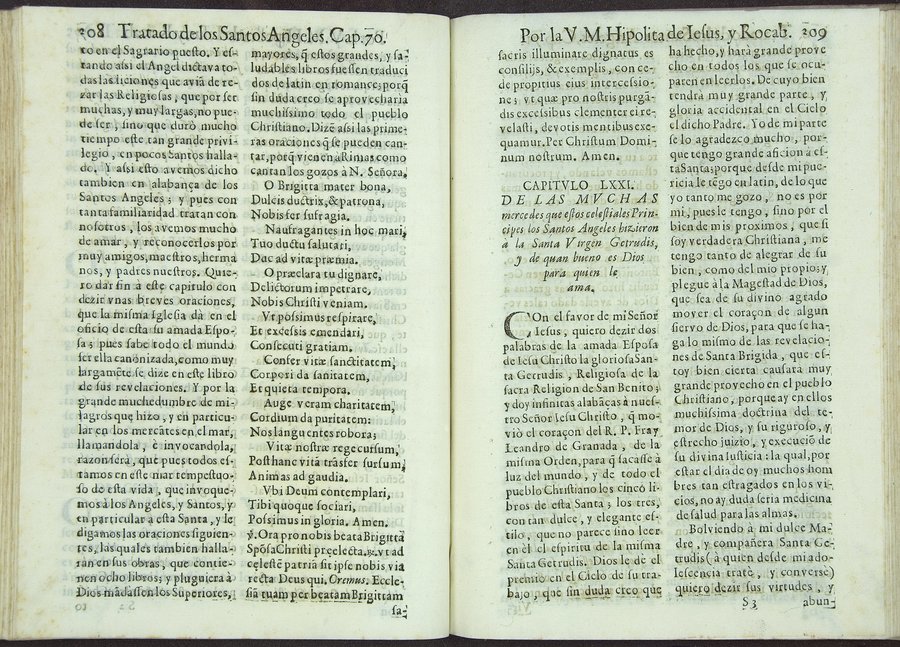 208 Tratado de los Santos Angeles. Cap. 70.
to en el Sagrario puesto. Y es-
tando assi el Angel dictava to-
das las liciones que aviã de re-
zar las Religiosas, que por ser
muchas, y muy largas, no pue-
de ser; sino que durò mucho
tiempo este tan grande privi-
legio, en pocos Santos halla-
do. Y assi esto avemos dicho
tambien en alabança de los
Santos Angeles; y pues con
tanta familiaridad tratan con
nosotros, los avemos mucho
de amar, y reconocerlos por
muy amigos, maestros, herma
nos, y padres nuestros. Quie-
ro dar fin à este capitulo con
dezir vnas breves oraciones,
que la misma Iglesia dà en el
oficio de esta su amada Espo-
sa; pues sabe todo el mundo
ser ella canonizada, como muy
largamẽte se dize en este libro
de sus revelaciones. Y por la
grande muchedumbre de mi-
lagros que hizo, y en particu-
lar en los mercãtes en el mar,
llamandola, è invocandola,
razon serà, que pues todos es-
tamos en este mar tempestuo-
so de esta vida, que invoque-
mos à los Angeles, y Santos, y
en particular à esta Santa, y le
digamos las oraciones siguien-
tes, las quales tambien halla-
ràn en sus obras, que contie-
nen ocho libros; y pluguiera à
Dios mãdassen los Superiores,
mayores, q̃ estos grandes, y sa-
ludables libros fuessen traduci
dos de latin en romance; porq̃
sin duda creo se aprovecharia
muchissimo todo el pueblo
Christiano. Dizẽ assi las prime-
ras oraciones q̃ se pueden can-
tar, porq̃ vienen à Rimas como
cantan los gozos à N. Señora.
O Brigitta mater bona,
Dulcis ductrix, & patrona,
Nobis fer suffragia.
Naufragantes in hoc mari,
Tuo ductu salutari,
Duc ad vitæ præmia.
O præclara tu dignare,
Delictorum impetrare,
Nobis Christi veniam.
Vt possimus respirare,
Et excessis emendari,
Consecuti gratiam.
Confer vitæ sanctitatem,
Corpori da sanitatem,
Et quieta tempora.
Auge veram charitatem,
Cordium da puritatem:
Nos languentes robora;
Vitæ nostræ rege cursum,
Post hanc vitã trãsfer sursum,
Animas ad gaudia.
Vbi Deum contemplari,
Tibi quoque sociari,
Possimus in gloria. Amen.
℣. Ora pro nobis beata Brigitta
Spõsa Christi preelecta. ℞. vt ad
celestẽ patria sit ipse nobis via
recta Deus qui, Oremus. Eccle-
siã tuam per beatam Brigittam
sa-
Por la V. M. Hipolita de Iesus, y Rocab. 209
sacris illuminare dignatus es
consilijs, & exemplis, con ce-
de propitius eius intercessio-
ne; vt quæ pro nostris purgã-
dis excessibus clementer ei re-
velasti, devotis mentibus exe-
quamur. Per Christum Domi-
num nostrum. Amen.
CAPITVLO LXXI.
DE LAS MVCHAS
mercedes que estos celestiales Prin-
cipes los Santos Angeles hizieron
à la Santa Virgen Getrudis,
y de quan bueno es Dios
para quien le
ama.
COn el favor de mi Señor
Iesus, quiero dezir dos
palabras de la amada Esposa
de Iesu Christo la gloriosa San-
ta Getrudis, Religiosa de la
sacra Religion de San Benito;
y doy infinitas alabãças à nues-
tro Señor Iesu Christo, q̃ mo-
viò el coraçon del R. P. Fray
Leandro de Granada, de la
misma Orden, para q̃ sacasse à
luz del mundo, y de todo el
pueblo Christiano los cincò li-
bros de esta Santa; los tres,
con tan dulce, y elegante es-
tilo, que no parece sino leer
en èl el espiritu de la misma
Santa Getrudis. Dios le dè el
premio en el Cielo de su tra-
bajo, que sin duda creo que
ha hecho, y harà grande prove
cho en todos los que se ocu-
paren en leerlos. De cuyo bien
tendrà muy grande parte, y
gloria accidental en el Cielo
el dicho Padre. Yo de mi parte
se lo agradezco mucho, por-
que tengo grande aficion à es-
ta Santa; porque desde mi pue-
ricia le tẽgo en latin, de lo que
yo tanto me gozo, no es por
mi, pues le tengo, sino por el
bien de mis proximos, que si
soy verdadera Christiana, me
tengo tanto de alegrar de su
bien, como del mio propio; y
plegue à la Magestad de Dios,
que sea de su divino agrado
mover el coraçon de algun
siervo de Dios, para que se ha-
ga lo mismo de las revelacio-
nes de Santa Brigida, que es-
toy bien cierta causarà muy
grande provecho en el pueblo
Christiano, porque ay en ellos
muchissima doctrina del te-
mor de Dios, y su riguroso, y
estrecho juizio, y execuciõ de
su divina Iusticia: la qual, por
estar el dia de oy muchos hom
bres tan estragados en los vi-
cios, no ay duda seria medicina
de salud para las almas.
Bolviendo à mi dulce Ma-
dre, y compañera Santa Ge-
trudis (à quien desde mi ado-
lescencia tratè, y conversè)
quiero dezir sus virtudes, y
S 3 abun-